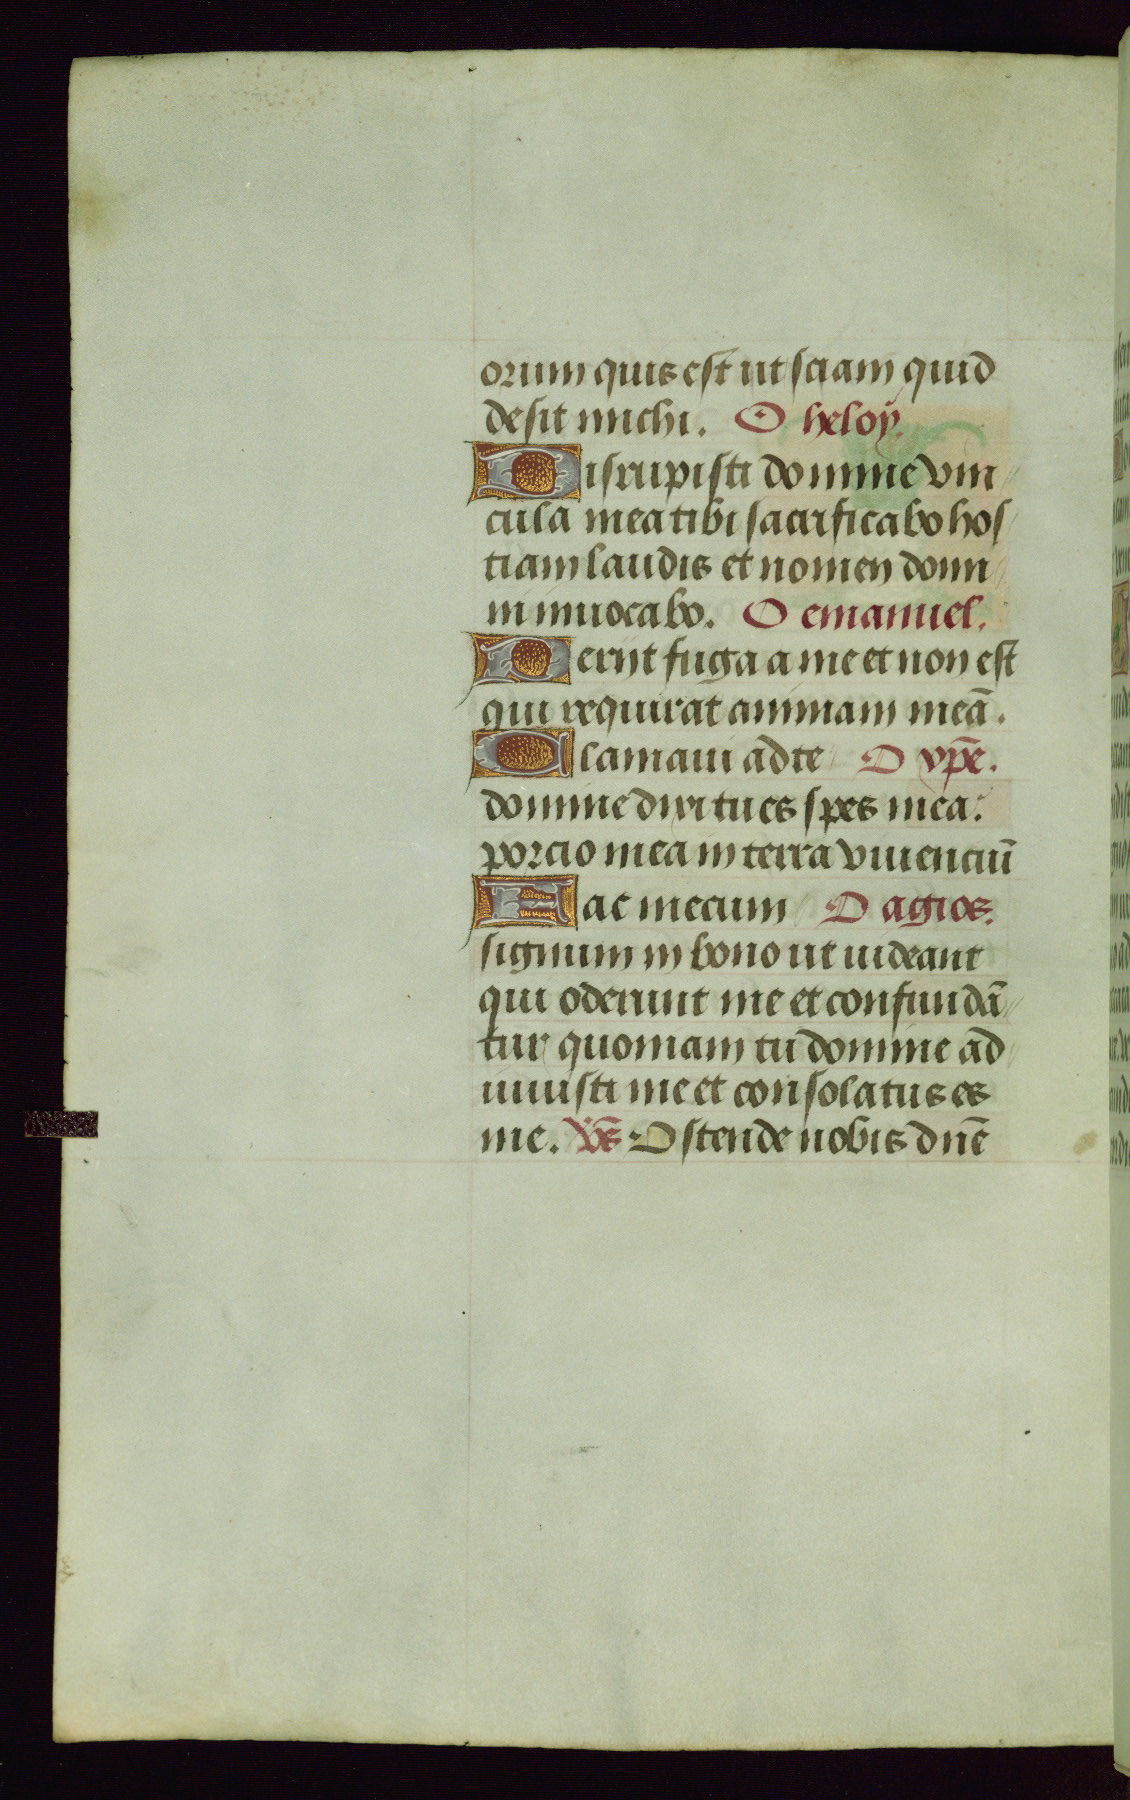 orum quis est ut sciam quid
desit michi. O heloÿ.
Disrupisti domine vin
cula mea tibi sacrificabo hos
tiam laudis et nomen domi
ni inuocabo. O emanuel.
Periit fuga a me et non est
qui requirat animam meā.
Clamaui ad te O xp̄e.
domine dixi tu es spes mea:
porcio mea in terra viuenciū
Fac mecum O agios.
signum in bono ut uideant
qui oderunt me et confundā
tur quoniam tu domine ad
iuuisti me et consolatus es
me. V̄s Ostende nobis dn̄e